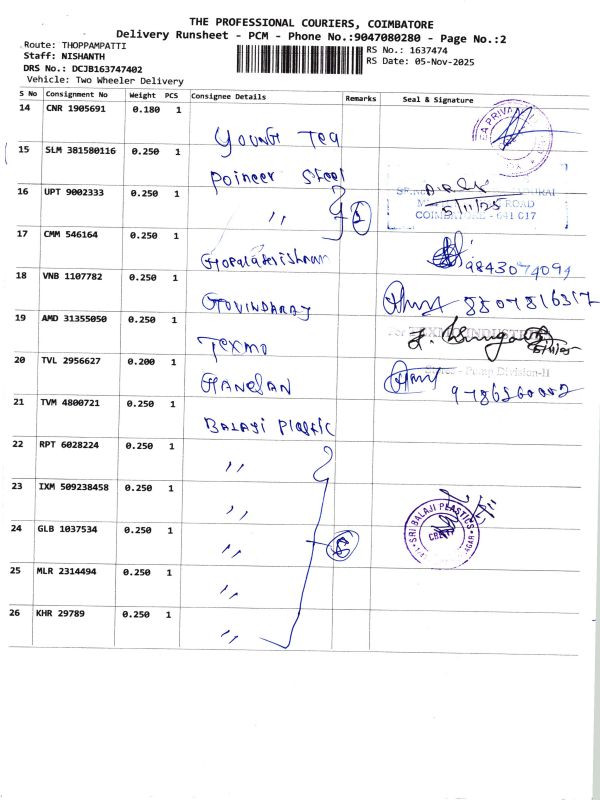 THE PROFESSIONAL COURIERS, COIMBATORE
Delivery Runsheet - PCM - Phone No.:9047080280 - Page No.:2
Route: THOPPAMPATTI
RS No.: 1637474
Staff: NISHANTH
RS Date: 05-Nov-2025
DRS No.: DCJB163747402
Vehicle: Two Wheeler Delivery
S No Consignment No Weight PCS Consignee Details Remarks Seal & Signature
14 CNR 1905691 0.180 1 Young Tea
15 SLM 381580116 0.250 1 Poineer Steel
16 UPT 9002333 0.250 1 ,, 2
5/11/25
ROAD
COIMBATORE - 641 017
17 CMM 546164 0.250 1 Gopalakrishnan 9843074094
18 VNB 1107782 0.250 1 GOVINDARAJ 8807816317
19 AMD 31355050 0.250 1 Texmo
For TEXMO INDUSTRIES
Stores - Pump Division-II
20 TVL 2956627 0.200 1 GANESAN
21 TVM 4800721 0.250 1 BALAJI Plastic
22 RPT 6028224 0.250 1 ,,
23 IXM 509238458 0.250 1 ,,
24 GLB 1037534 0.250 1 ,, 6
SRI BALAJI PLASTICS
25 MLR 2314494 0.250 1 ,,
26 KHR 29789 0.250 1 ,,